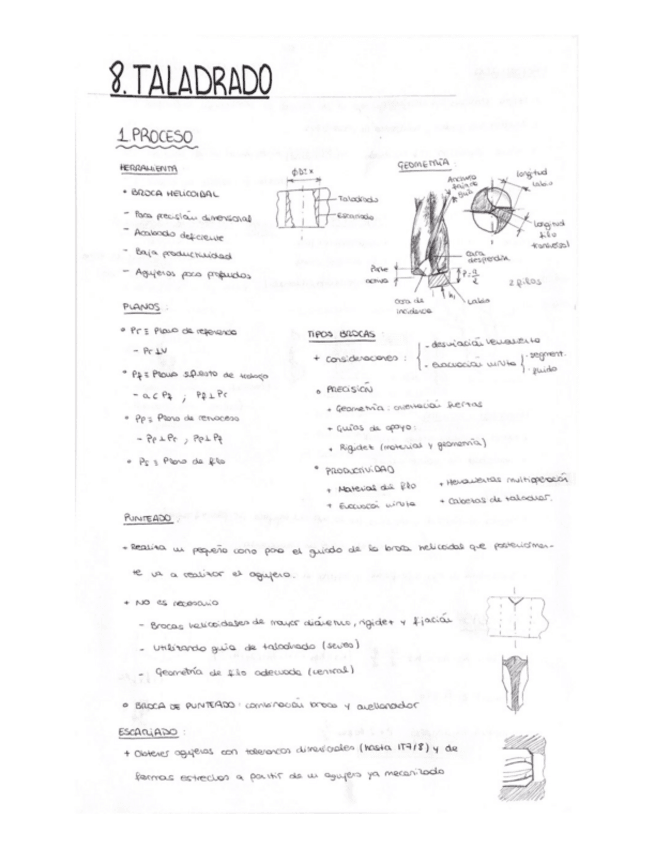 8. TALADRADO
1. PROCESO
HERRAMIENTA
* BROCA HELICOIDAL
- Poca precisión dimensional
- Acabado deficiente
- Baja productividad
- Agujeros poco profundos
Taladrado
Escariado
GEOMETRÍA:
Anchura
faja de
guía
longitud
labio
longitud
filo
transversal
cara
desprendim.
Parte
activa
cara de
incidencia
Labio
2 filos
PLANOS:
* Pr ≡ Plano de referencia
- Pr ⊥ V
* Pf ≡ Plano supuesto de trabajo
- a ⊂ Pf ; Pf ⊥ Pr
* Pp ≡ Plano de retroceso
- Pp ⊥ Pr ; Pp ⊥ Pf
* Ps ≡ Plano de filo
TIPOS BROCAS
+ Consideraciones:
- desviación herramienta
- evacuación viruta
· segment.
· fluido
* PRECISIÓN
+ Geometría: orientación fuerzas
+ Guías de apoyo:
+ Rigidez (material y geometría)
* PRODUCTIVIDAD
+ Material de filo
+ Evacuación viruta
+ Herramientas multioperación
+ Cabezas de taladrar.
PUNTEADO:
+ Realiza un pequeño cono para el guiado de la broca helicoidal que posteriormen-
te va a realizar el agujero.
+ No es necesario
- Brocas helicoidales de mayor diámetro, rigidez y fijación
- Utilizando guía de taladrado (series)
- Geometría de filo adecuada (central)
* BROCA DE PUNTEADO: combinación broca y avellanador
ESCARIADO:
+ Obtener agujeros con tolerancias dimensionales (hasta IT7/8) y de
formas estrechas a partir de un agujero ya mecanizado